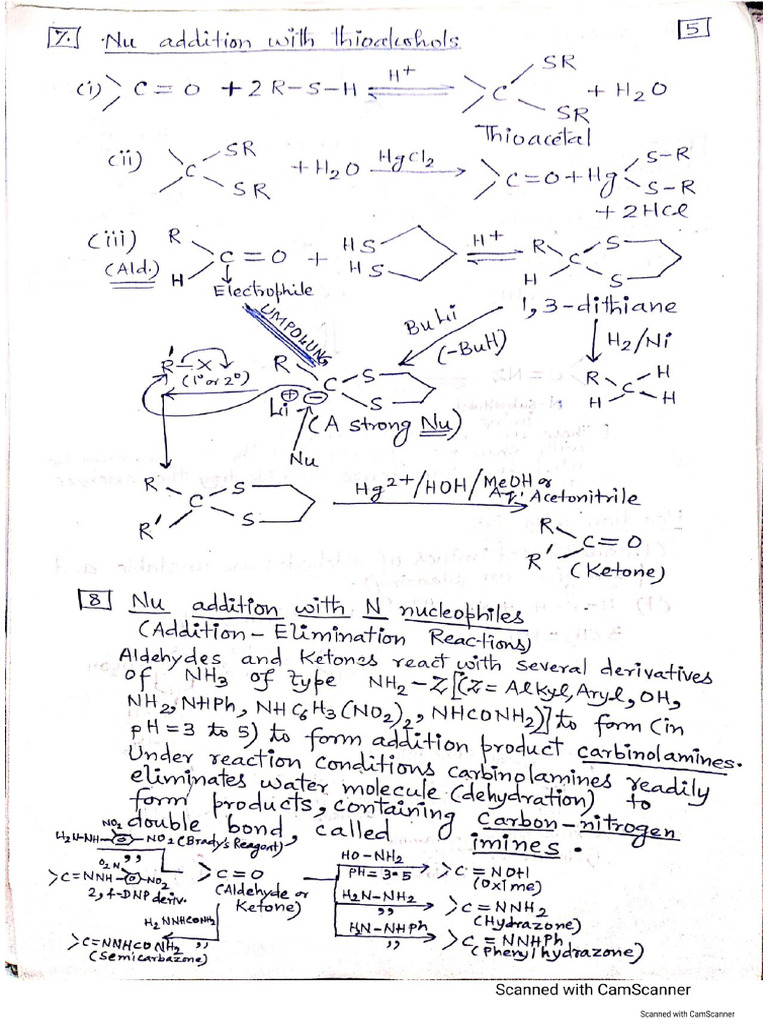 7. Nu addition with thioalcohols. 5
(i) >C=O + 2R-S-H ⇌ H+ >C SR SR + H2O
Thioacetal
(ii) >C SR SR + H2O HgCl2 → >C=O + Hg S-R S-R
+ 2HCl
(iii) R H C=O + HS HS H+ ⇌ R H C S S
(Ald.)
Electrophile
1,3-dithiane
UMPOLUNG
BuLi
(-BuH)
H2/Ni
R H C H H
R'-X
(1° or 2°)
R C S S
Li ⊕ ⊖
(A strong Nu)
Nu
R R' C S S Hg2+/HOH/MeOH or
Aq. Acetonitrile
R R' C=O
(Ketone)
8 Nu addition with N nucleophiles
(Addition-Elimination Reactions)
Aldehydes and Ketones react with several derivatives
of NH3 of type NH2-Z[(Z=Alkyl, Aryl, OH,
NH2, NHPh, NHC6H3(NO2)2, NHCONH2)] to form (in
pH=3 to 5) to form addition product carbinolamines.
Under reaction conditions carbinolamines readily
eliminates water molecule (dehydration) to
form products, containing carbon-nitrogen
double bond, called imines.
H2N-NH- NO2 -NO2 (Brady's Reagent)
>C=NNH- O2N -NO2
2,4-DNP deriv.
>C=O
(Aldehyde or
Ketone)
HO-NH2
PH=3-5
>C=NOH
(Oxime)
H2N-NH2
,,
>C=NNH2
(Hydrazone)
H2N-NHPh
,,
>C=NNHPh
(Phenylhydrazone)
H2NNHCONH2
,,
>C=NNHCONH2
(Semicarbazone)
Scanned with CamScanner
Scanned with CamScanner